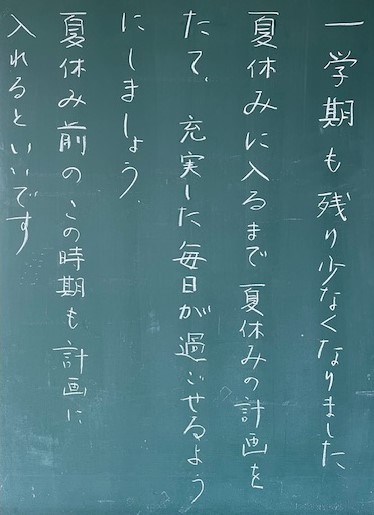 一学期も残り少なくなりました
夏休みに入るまで夏休みの計画を
たて、充実した毎日が過ごせるよう
にしましょう。
夏休み前のこの時期も計画に
入れるといいです